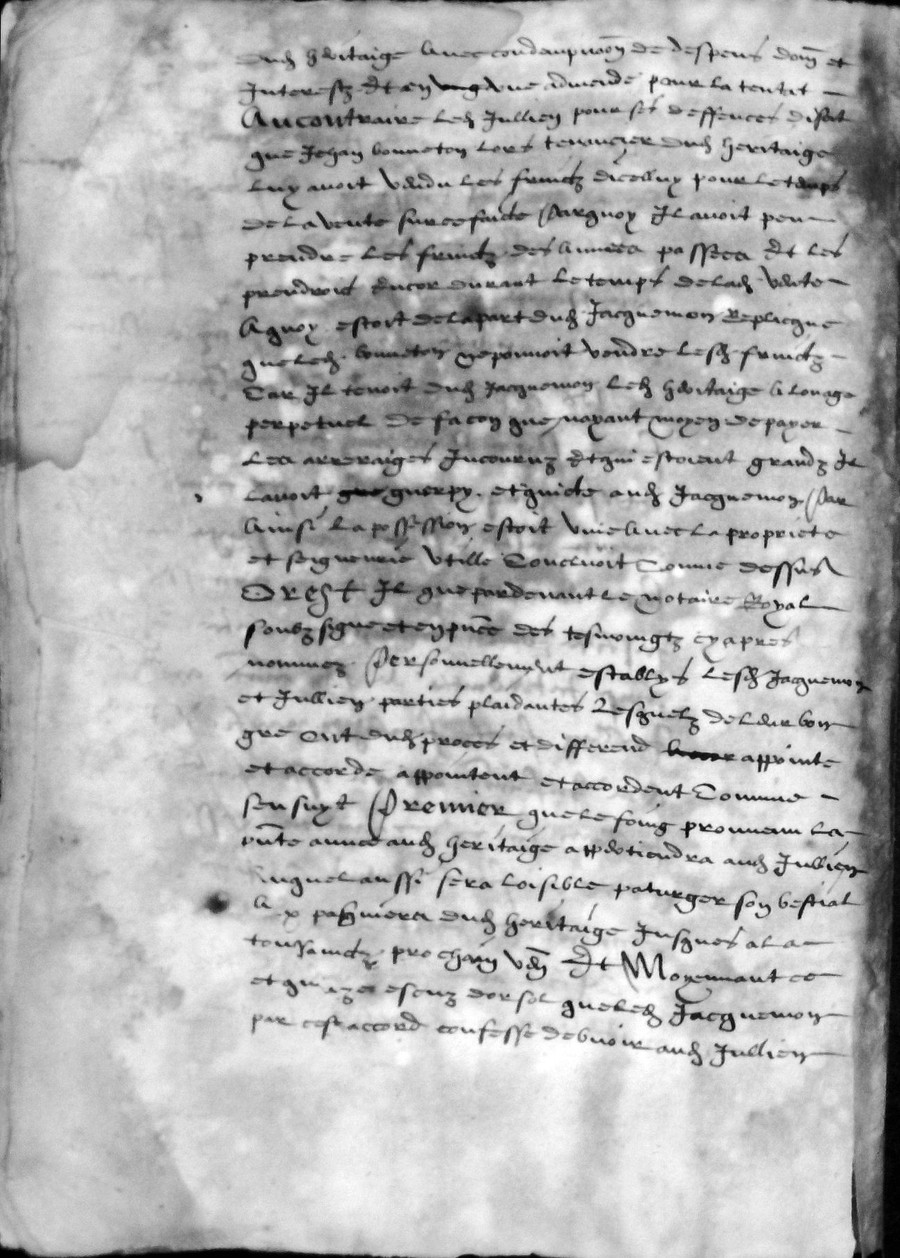 dud heritaige avec condempnaon de despens dom et
Interestz Et en ung une admende pour la tentit
Au contraire led Jullien pour ses deffences disoit
que Jehan bonneton lors tenancier dud heritaige
luy avoit vendu les fruictz dicelluy pour le temps
de la vente sur ce faicte Parquoy Il avoit peu
prendre les fruictz des annees passees Et les
prendroit Encor durant le temps de lad vente
A quoy estoit de la part dud Jacquemon Replicque
que led bonneton ne pouvoit vendre lesd fruictz
Car Il tenoit dud Jacquemon led heritaige a louage
perpetuel de facon que nayant moyen de payer
les arreraiges Incouruz Et qui estoient grandz Il
lavoit que guerpy et quicte aud Jacquemon Par
Ainsi la possession estoit unie avec la propriete
et seigneurie utille Concluoit Comme dessus
Or est Il que pardevant le notaire Royal
soubzsigne et en pnce des tesmoingtz cy apres
nommez Personnellement establys lesd Jacquemon
et Jullien parties plaidantes Lesquelz de leur bon
gre Ont dud proces et differend appointe
et accorde appointent et accordent Comme
sensuyt Premier que le foing provenu la
pnte annee aud heritaige appertiendra aud Jullien
Auquel aussi sera loisible paturger son bestial
dud heritaige Jusques a la
toussainctz prochain Et Moyennant ce
et escuz dor sol que led Jacquemon
par cest accord confesse debvoir aud Jullien